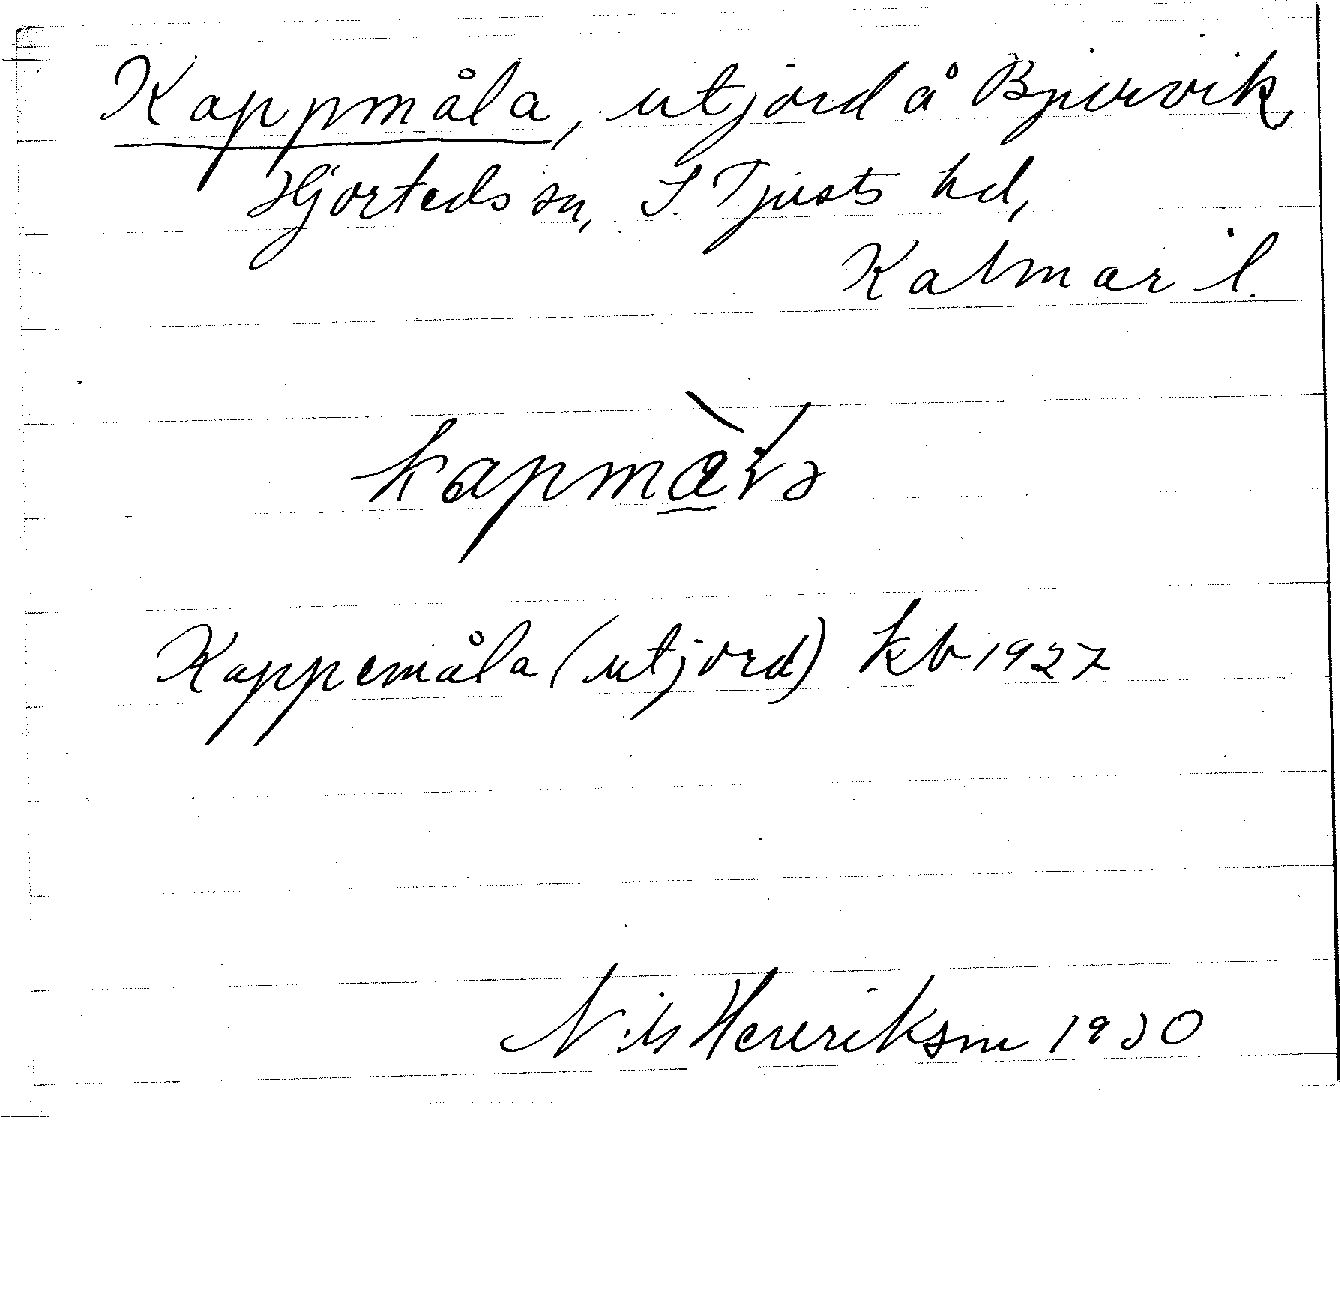 Kappmåla, utjord å Bjursvik
Hjorteds sn, S. Tjusts hd,
Kalmar l.
Kappemåla (utjord) kb 1927
Nils Henrikson 1930